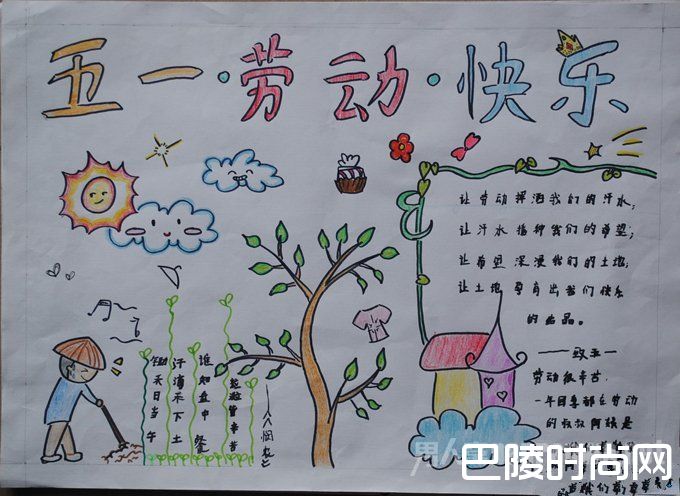 五一·劳动·快乐
让劳动挥洒我们的汗水;
让汗水播种我们的希望;
让希望深浸我们的土地;
让土地孕育出我们快乐
的出品。
——致五一
劳动最辛苦,
一年四季都在劳动
的叔叔阿姨是
锄禾日当午
汗滴禾下土
谁知盘中餐
粒粒皆辛苦
巴陵时尚网